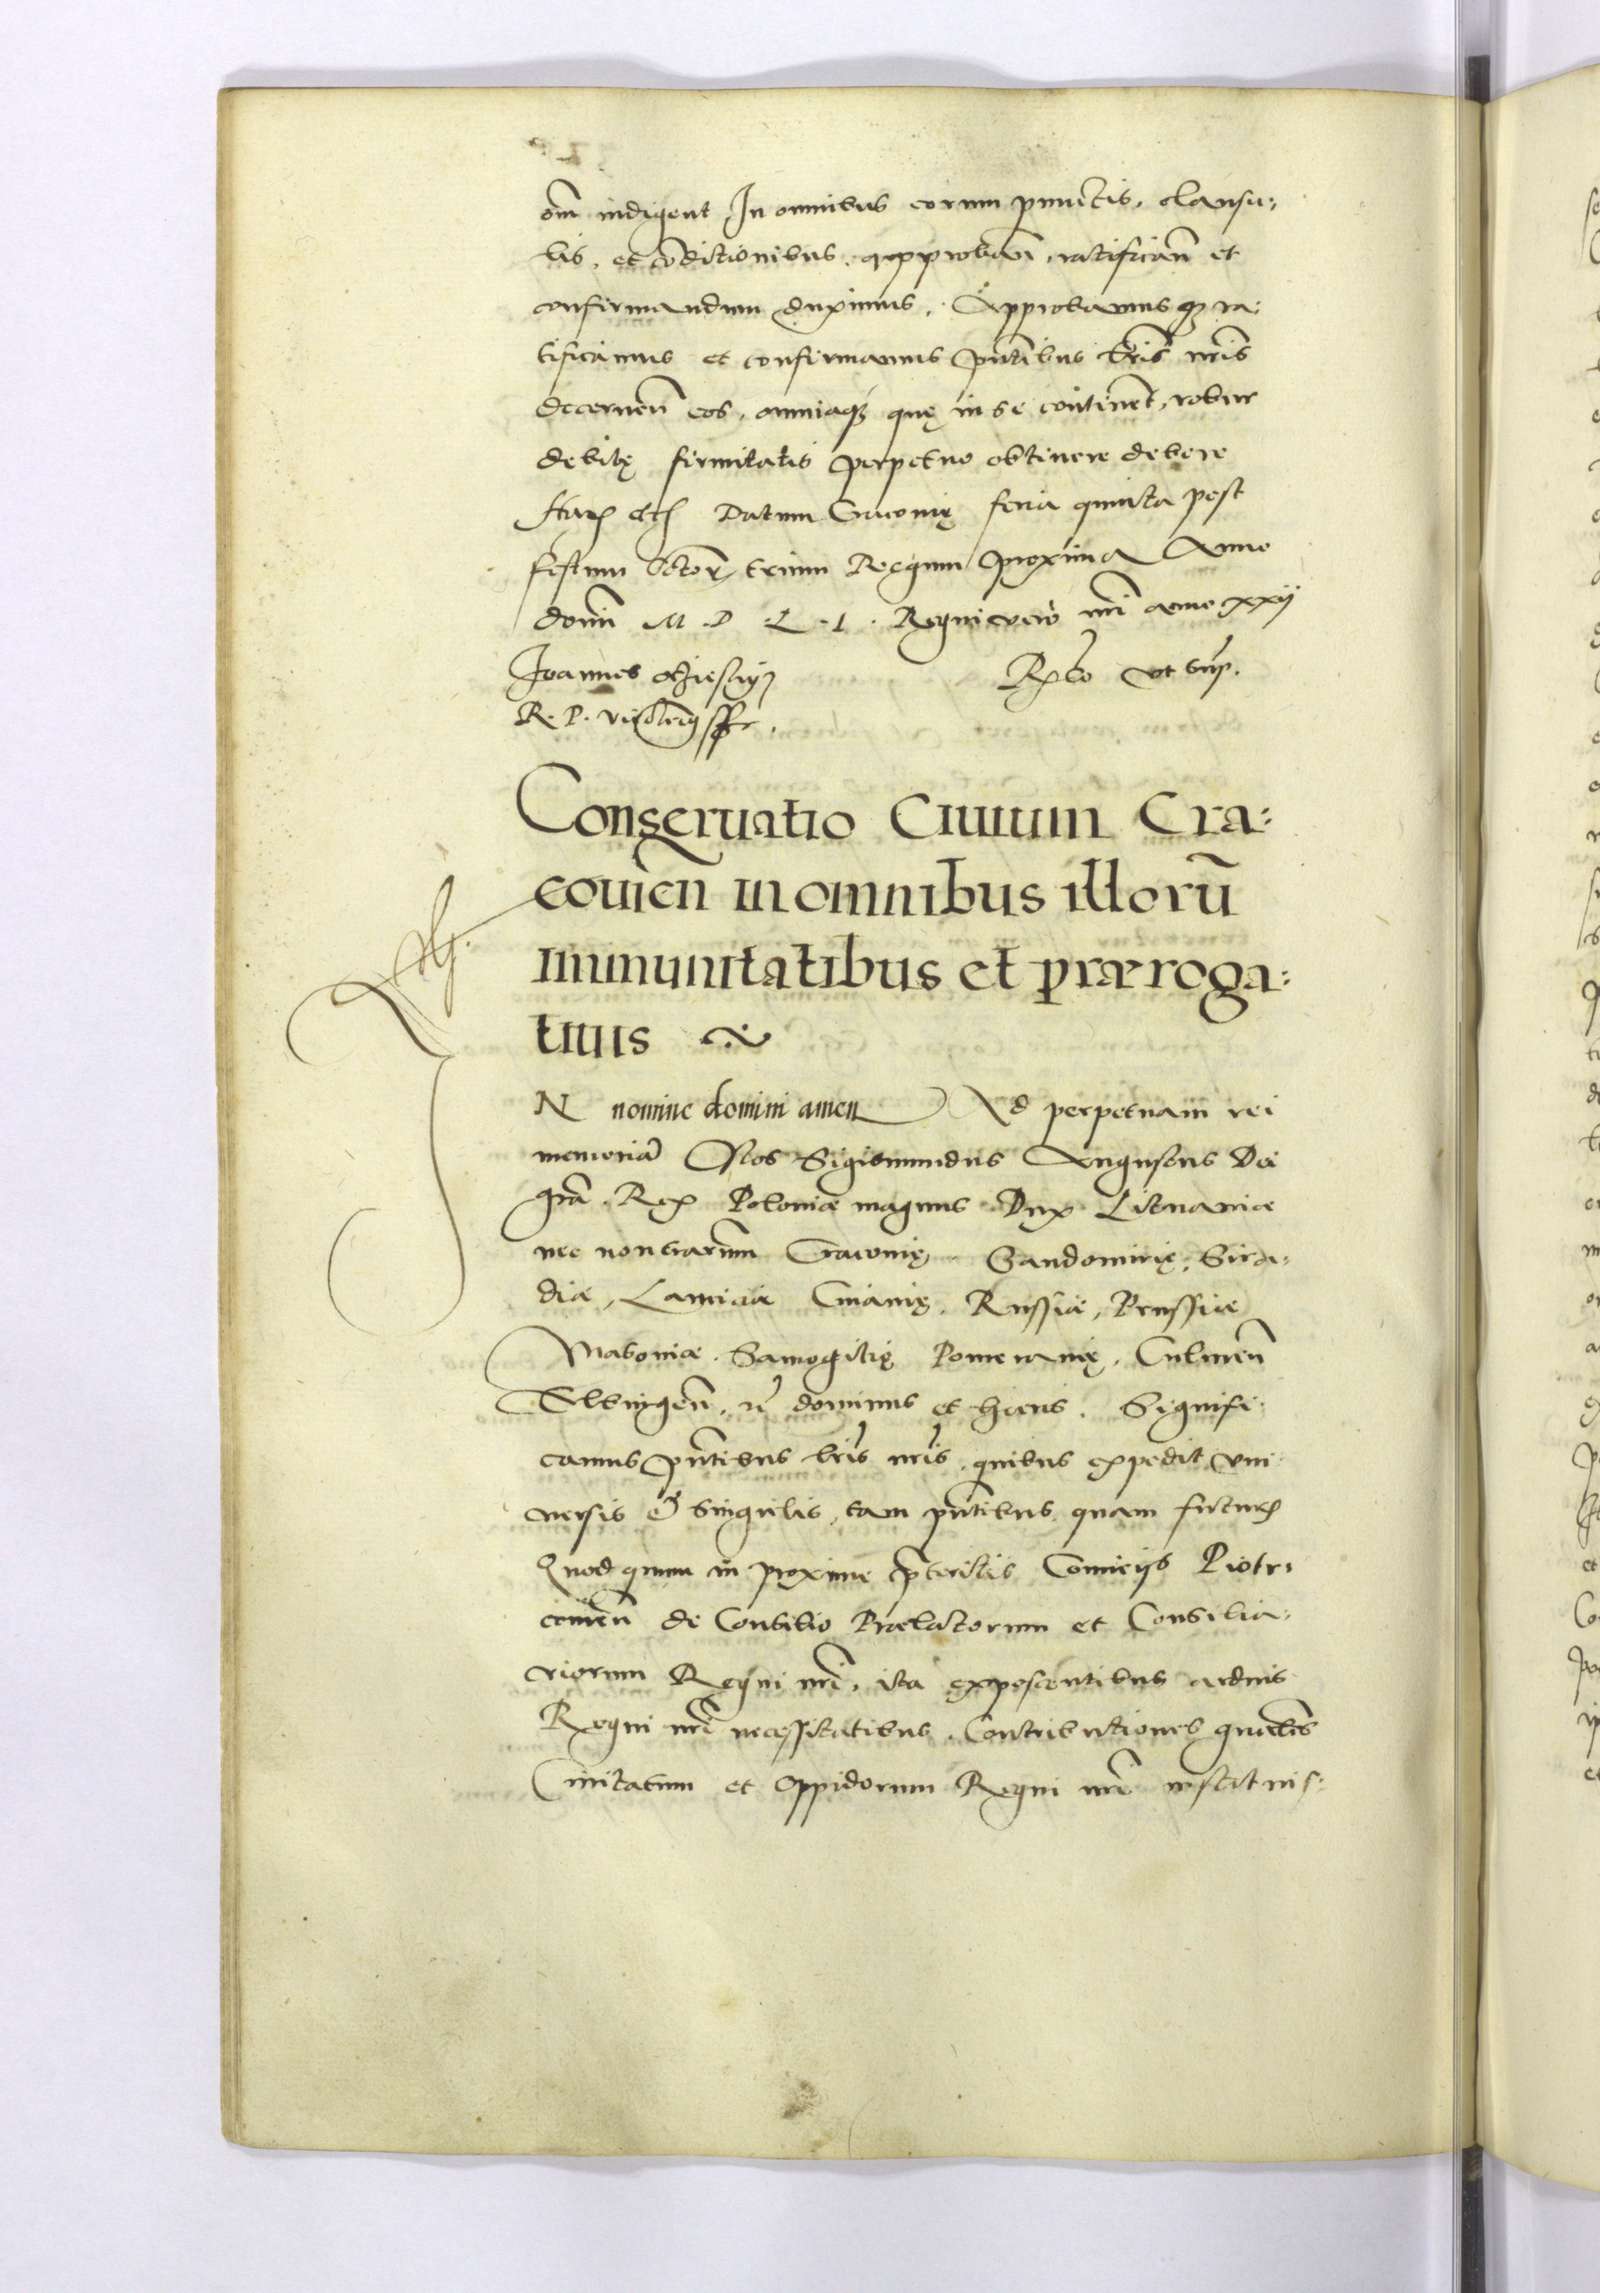 om̄ indigent In omnibus eorum punctis, clausu:
lis, et cōditionibus, approban̄, ratifican̄ et
confirmandum duximus. Approbamusqȝ ra:
tificamus et confirmamus pn̄tibus lr̄is nr̄is
decernen̄ eos, omniaqȝ quę in se continent, robur
debitę firmitatis perpetuo obtinere debere
Harȝ etȝ Datum Cracovię feria quinta post
festum sctorȝ trium Regum proxima Anno
domī M . D . L . I . Regni vero nr̄i anno xxij
Joannes Ocziesky
R. P. Vicecancellarius sst.
Rlō vt supr.
Conseruatio Ciuium Cra:
couien̄ in omnibus illorū
immunitatibus et præroga:
tiuis
IN nomine domini amen Ad perpetuam rei
memoriā Nos Sigismundus Augustus Dei
grā Rex Poloniæ magnus Dux Lituaniæ
nec non terrarum Cracovię Sandomirię, Sira:
diæ, Lanciciæ Cuiavię, Russiæ, Prussiæ
Masoviæ Samogitię Pomeranię, Culmen̄
Elbingen̄, zc̄ dominus et hæres. Signifi:
camus pn̄tibus lr̄is nr̄is, quibus expedit vni
uersis & singulis, tam pn̄tibus quam futurȝ
Quod quum in proxime p̄teritis Comicijs Piotr:
couien̄ de Consilio Prælatorum et Consilia:
riorum Regni nr̄i, ita exposcentibus arduis
Regni nr̄i necessitatibus, Contributiones
Ciuitatum et oppidorum Regni nr̄i instituis: